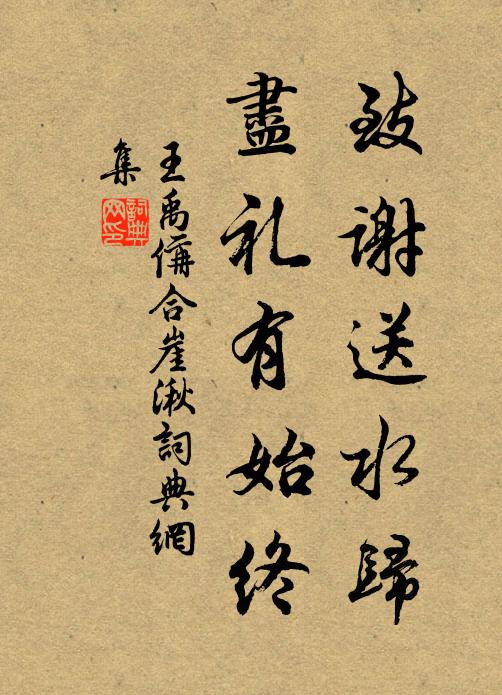 致谢送水歸
盡礼有始終
王禹偁合崖湫詞典網
集
詞典網印